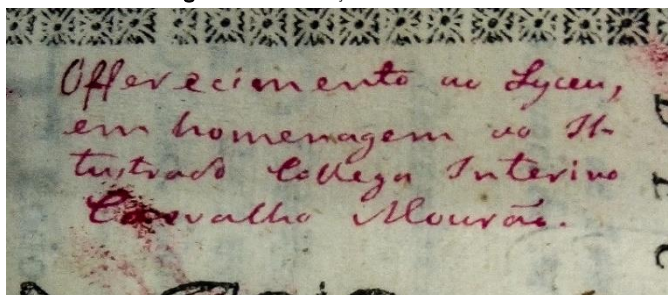 Offerecimento ao Lyceu,
em homenagem ao Il-
lustrado Collega Interino
Carvalho Mourão.